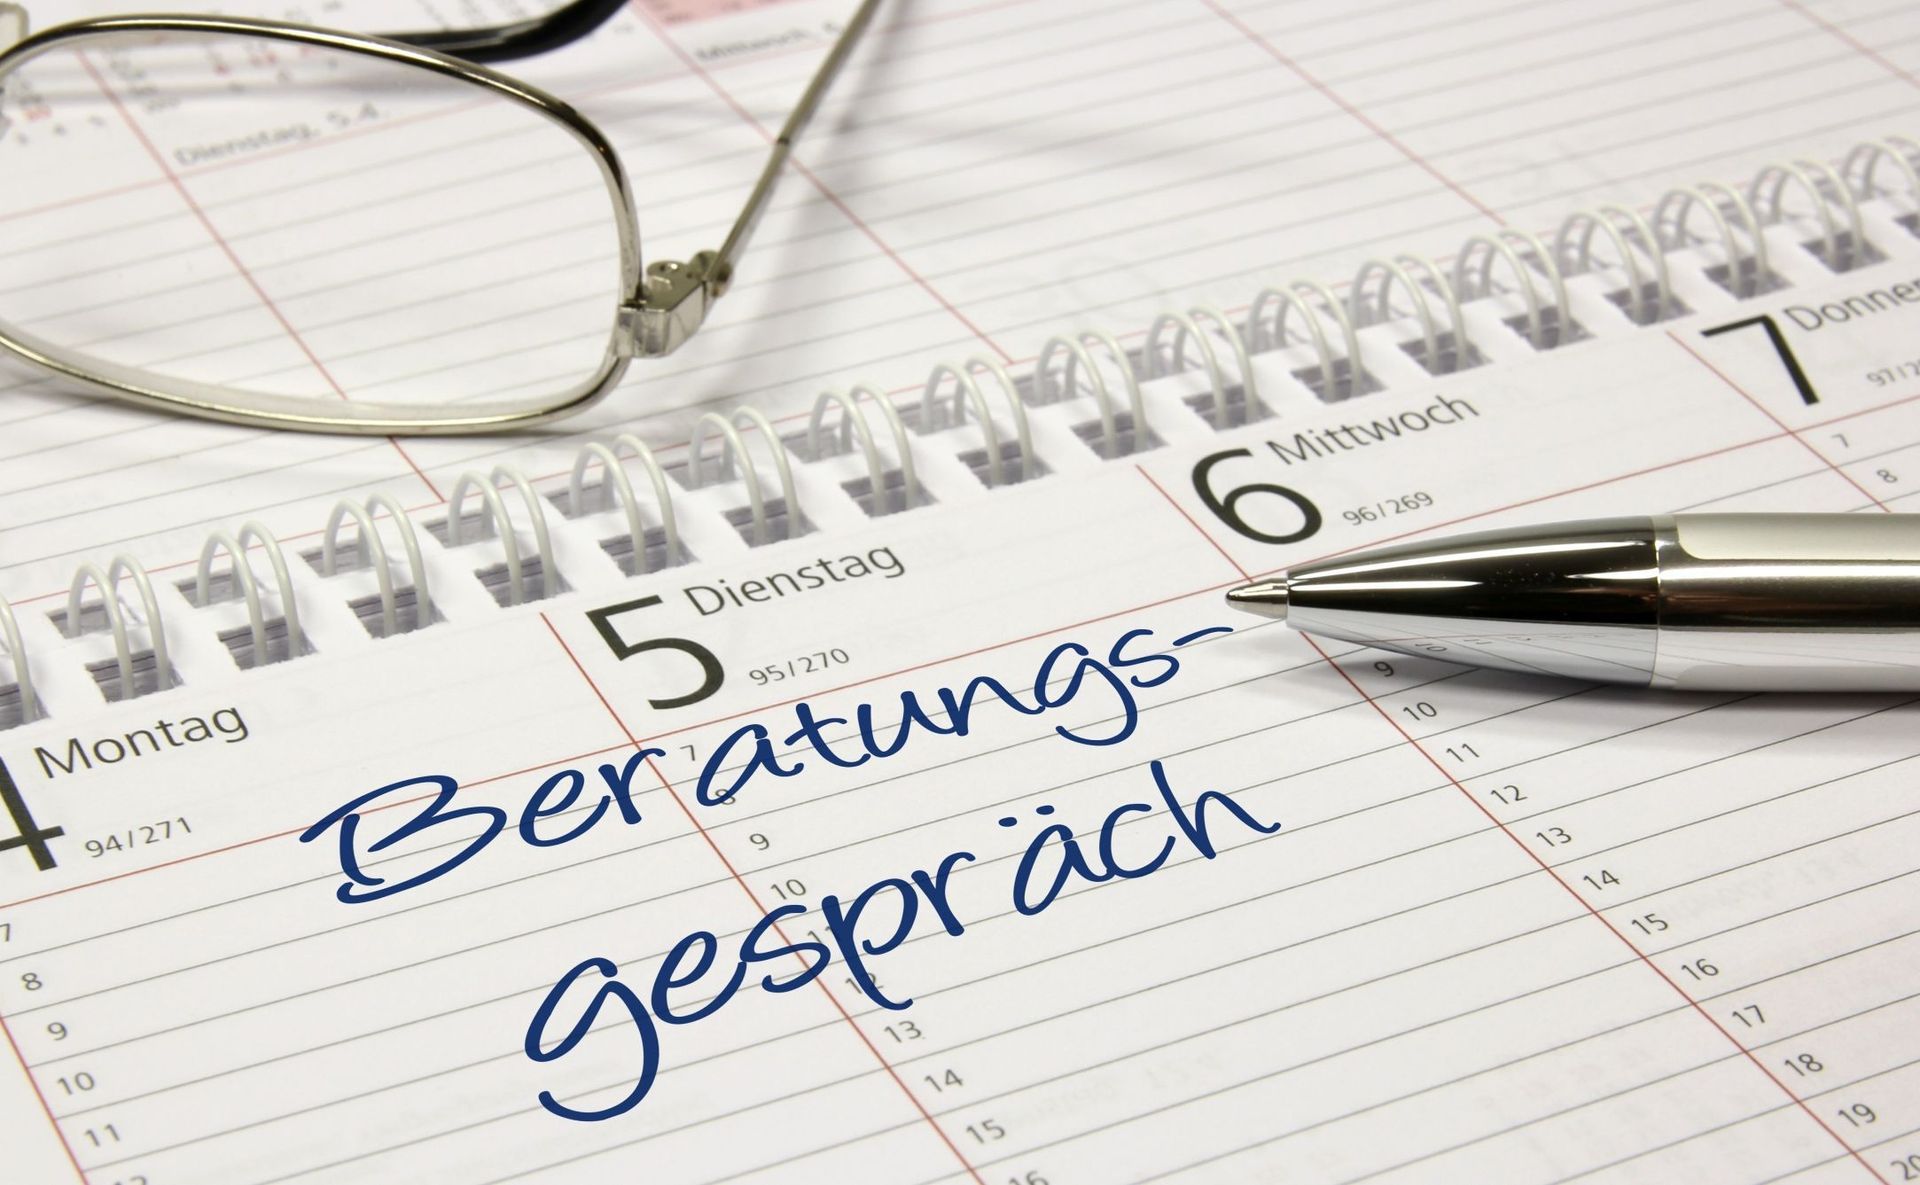 Mittwoch,
Dienstag, 5.4.
7 Donner
6 Mittwoch
96/269
5 Dienstag
95/270
4 Montag
94/271
Beratungs-
gespräch
7
8
9
10
11
7
8
9
10
11
12
13
14
15
16
9
10
11
12
13
14
15
16
17
18
19
20
7
8